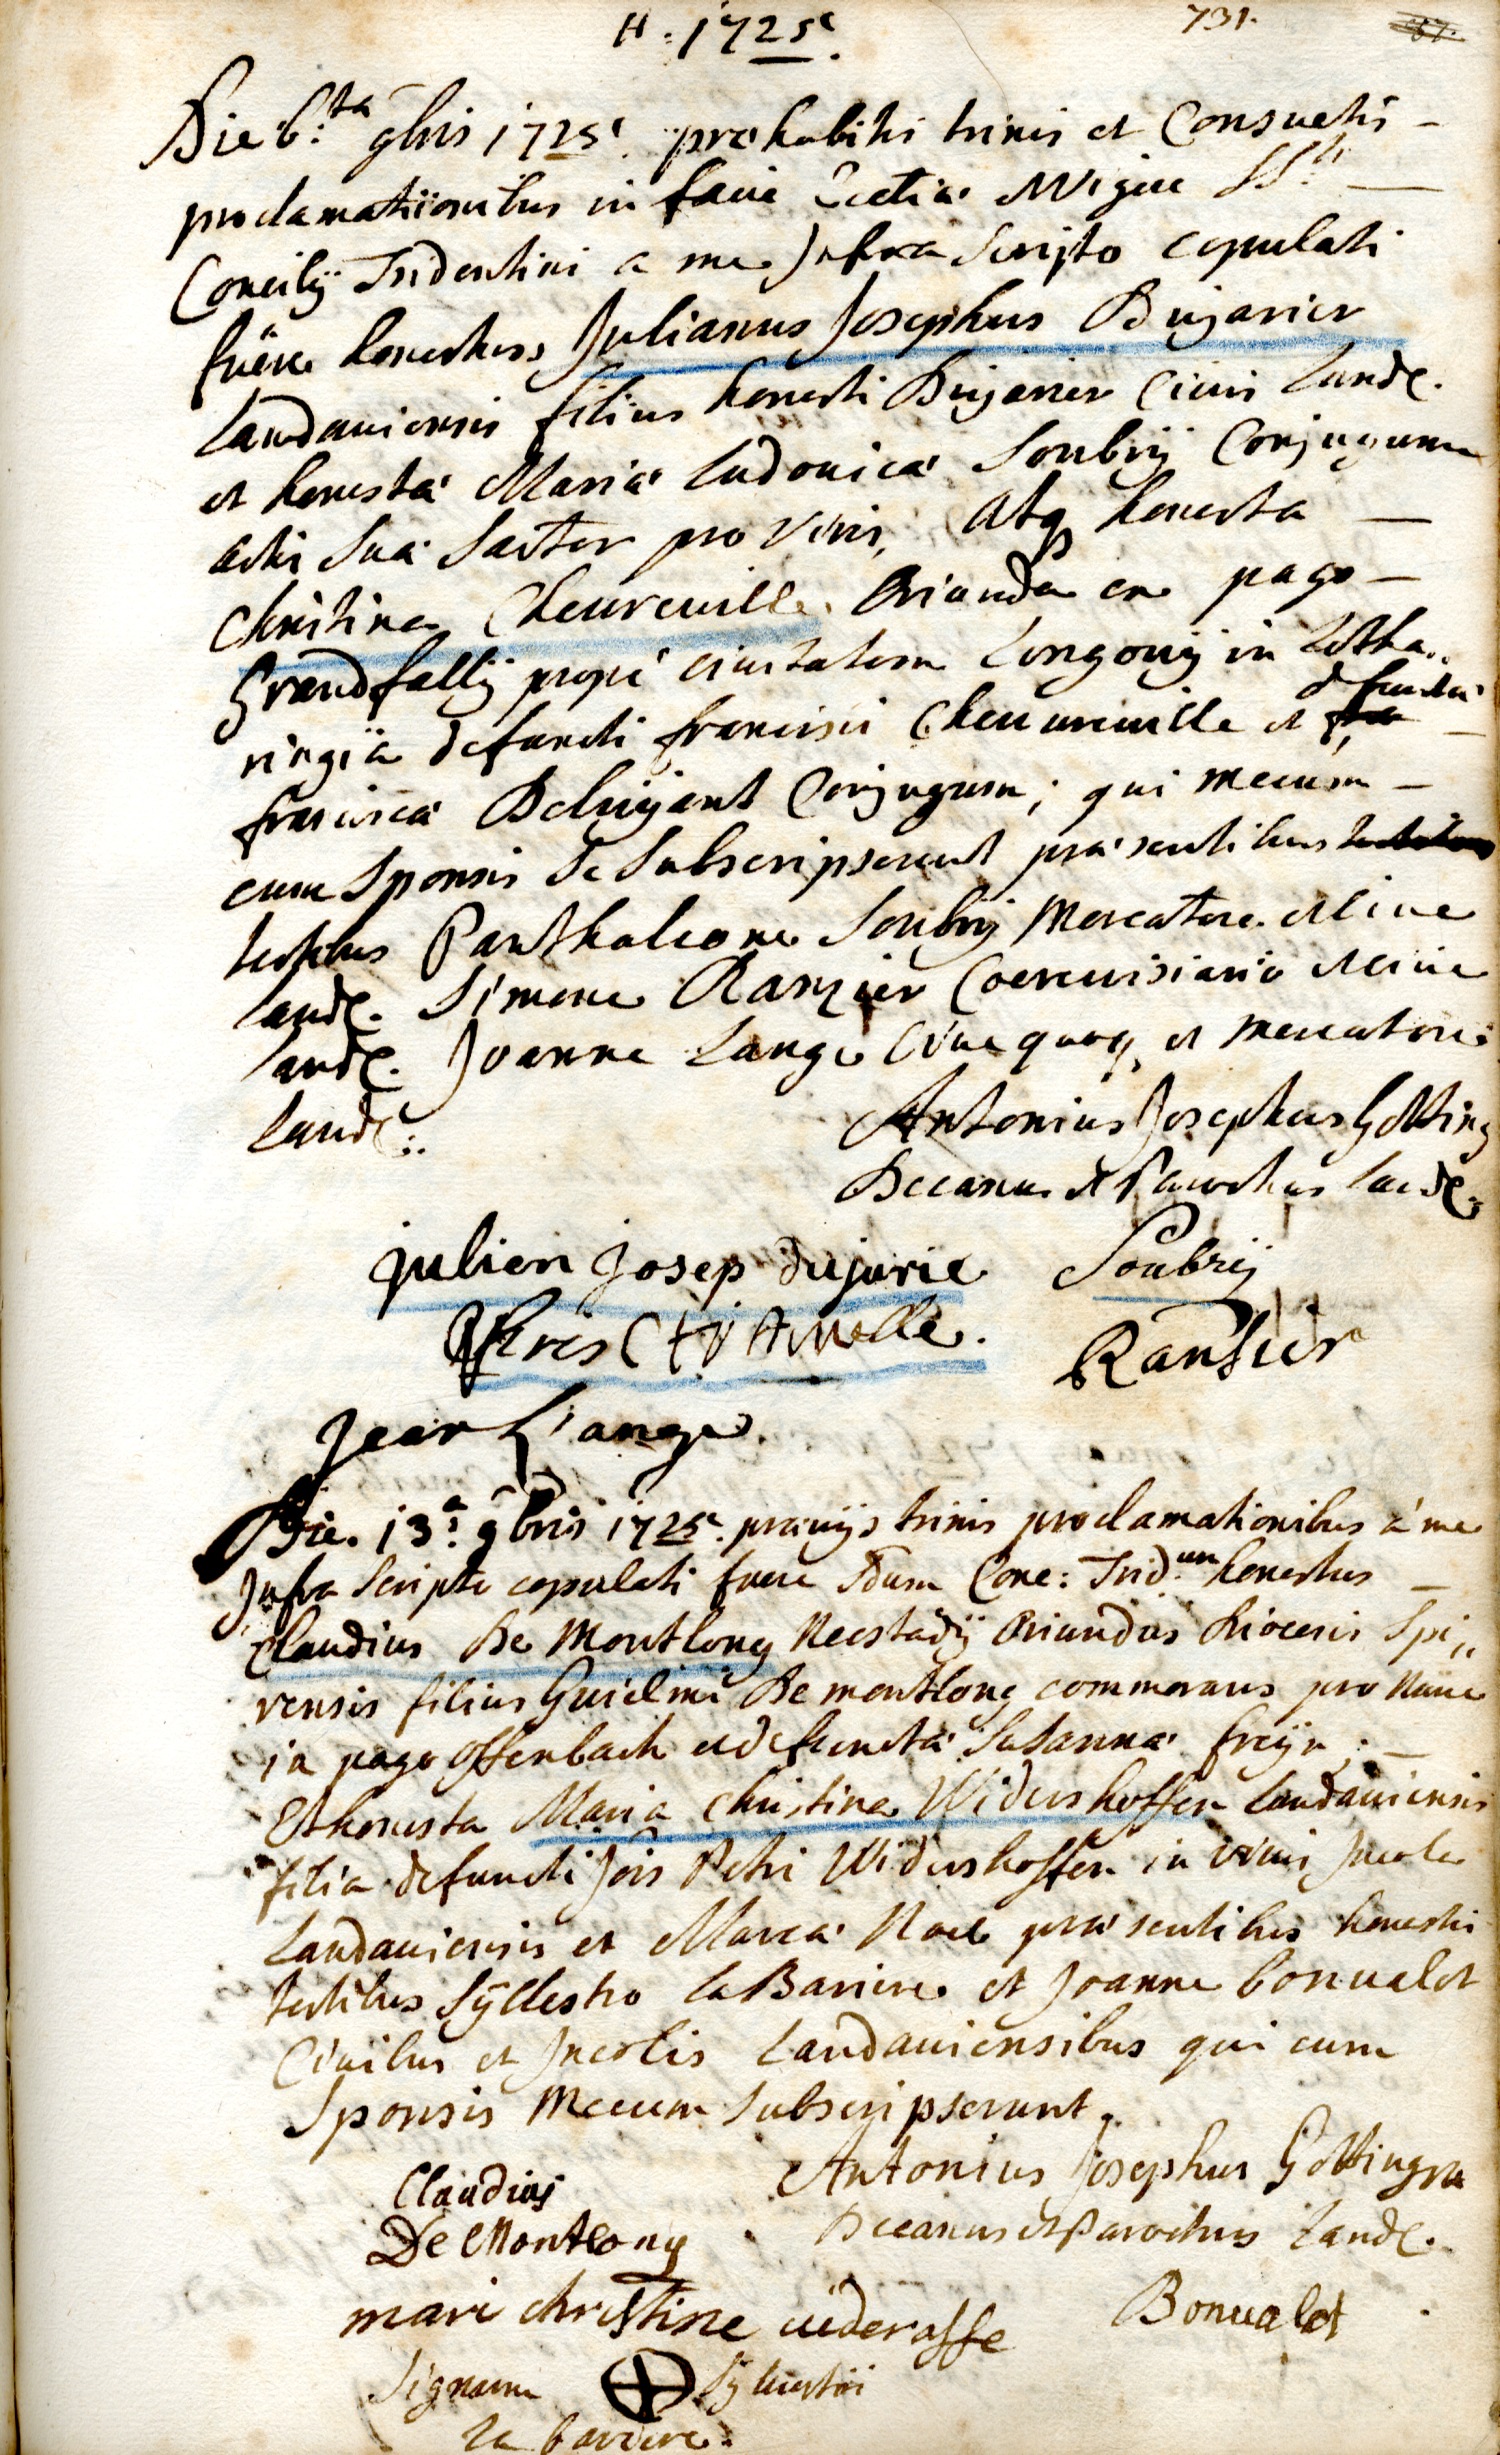 H. 1725. 731.
Die 6.ta 9bris 1725. præhabitis trinis et Consuetis
proclamationibus in facie Ecctiæ SS.ti
Concilij Tridentini a me Infra Scripto copulati
fuêre honestus Julianus Josephus Dujarier
Landaviensis filius honesti Dujarier Civis Land.
et honestæ Mariæ Ludovicæ Soubrij Conjugum
pro Atq honesta
Christina Cheureuille Oriunda ex pago
Grandfally propè civitatem Longovij in Lotha..
ringiâ defuncti francisci Cheuureuille et defunctæ
franciscæ Conjugum; qui mecum
cum Sponsis Se Subscripserunt præsentibus
testibus Panthaleone Soubrij Mercatore et Cive
Land. Simone Ranzier Coerevisiario et Cive
Land. Joanne Lange Cive quoq et mercatore
Land:.
Antonius Josephus Götting
Decanus et Parochus Land.
julien Josep dujarie Soubrij
Ransier
Jean L'ange.
Die. 13.a 9bris 1725. prævijs trinis proclamationibus à me
Infra Scripto copulati fuere Sdum Conc: Trid.um honestus
Claudius De Montlong Neostadij Oriundus Diocesis Spi,,
rensis filius Guielmi De montlong commorans pro nunc
in pago Offenbach et defunctæ Susannæ freÿn;
Et honesta Maria Christina Widershoffen Landaviensis
filia defuncti Jois Petri Widershoffen in vivis Incolæ
Landaviensis et Marcæ Noel præsentibus honestis
testibus Sÿlvestro la Bariere et Joanne bonualot
Civibus et Incolis Landaviensibus qui cum
Sponsis Mecum Subscripserunt.
Claudius Antonius Josephus Göttingn
De Montlong Decanus et Parochus Land.
mari christine uideroffe Bonualot
Signum Sÿluestri
la bariere.